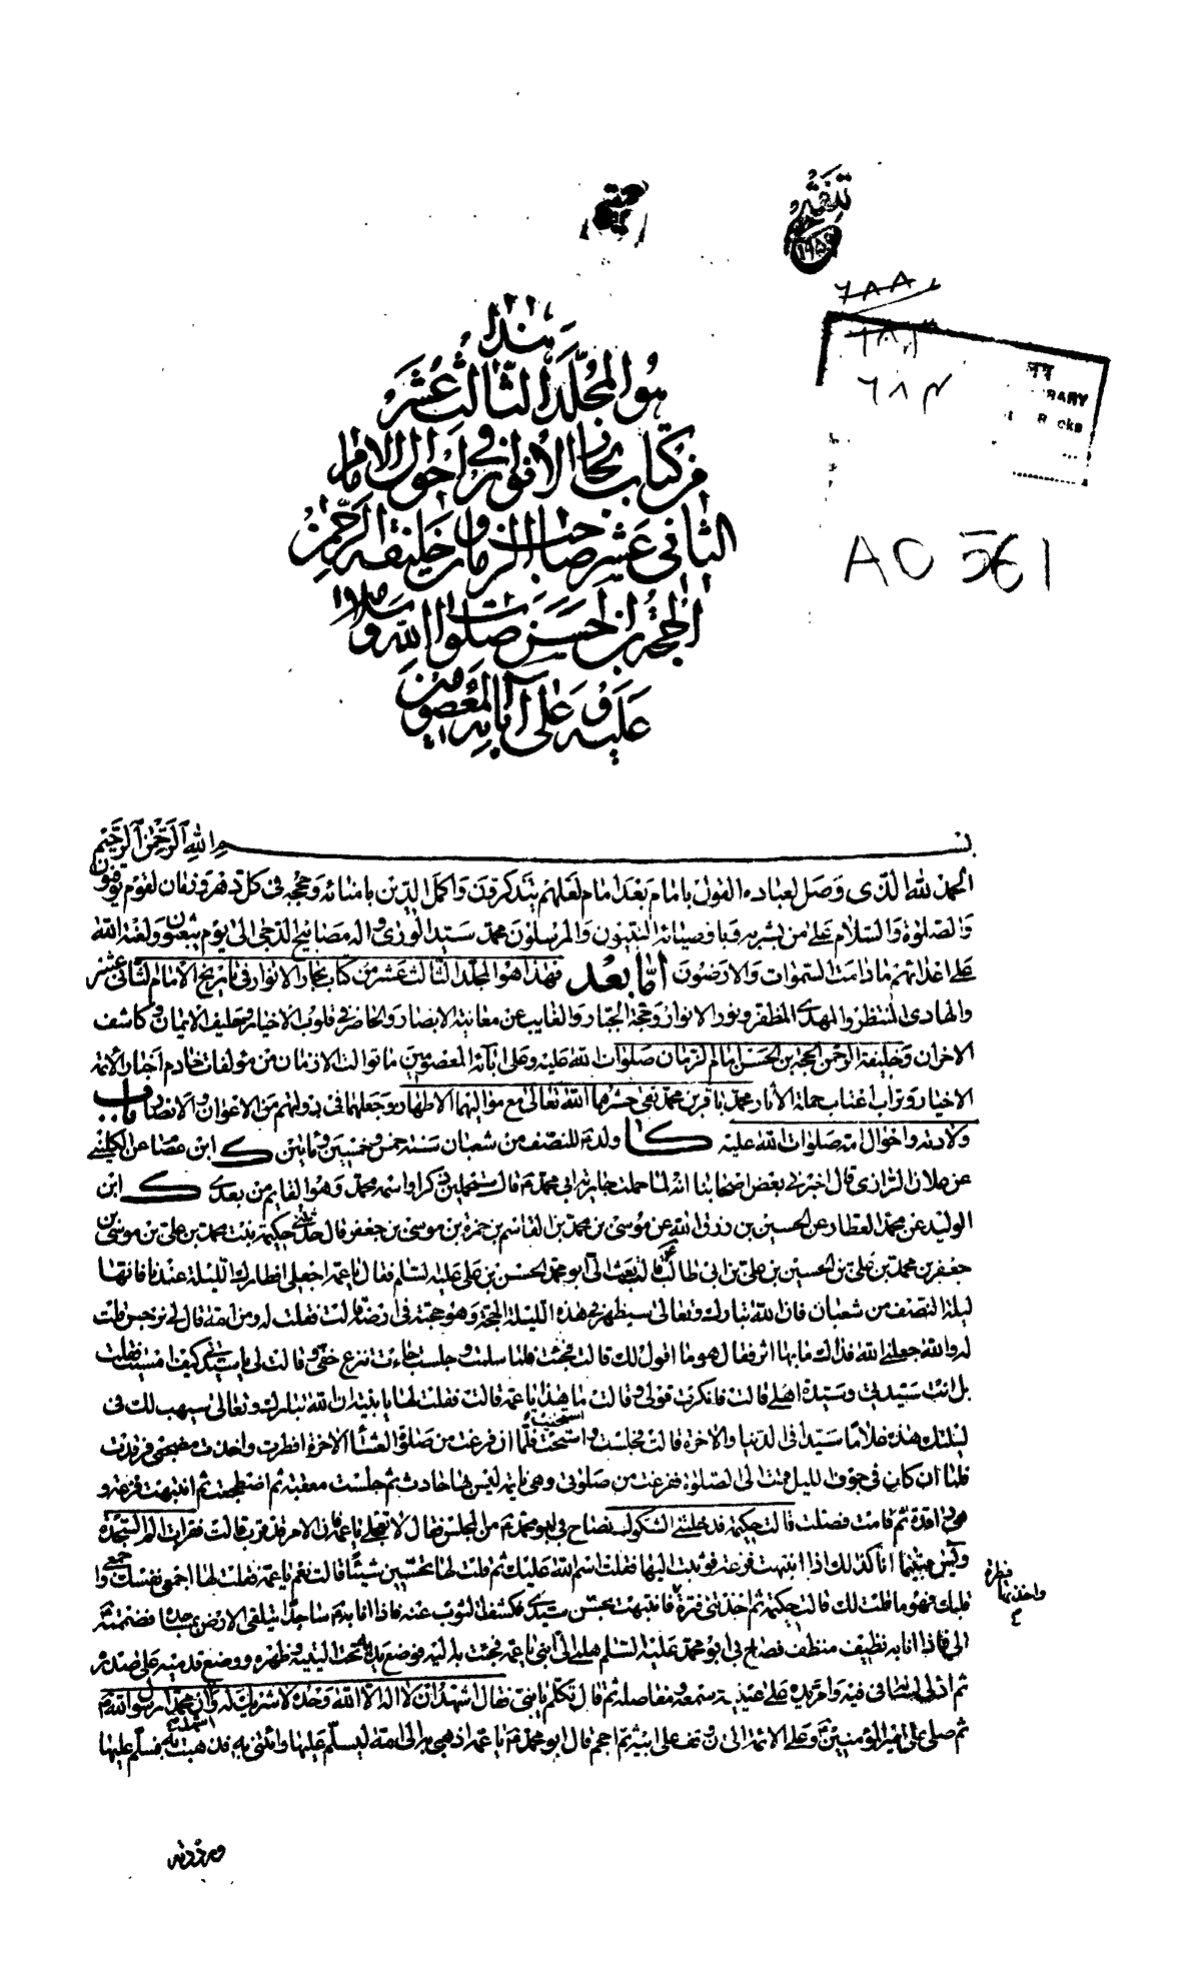 هذا
هو المجلد الثالث عشر
من كتاب بحار الأنوار في احوال الامام
الثاني عشر صاحب الزمان و خليفة الرحمن
الحجة بن الحسن صلوات الله و سلامه
عليه و على آبائه المعصومين
٦٨٨
٦٨٣
RARY
AC 561
بسم الله الرحمن الرحيم
الحمد لله الذى وصل لعباده القول بامام بعد امام لعلهم يتذكرون واكمل الدين بامنائه وحججه فى كل دهر وزمان لقوم يوقنون
والصلوة والسلام على من بشر به وباوصيائه النبيون والمرسلون محمد سيد الورى واله مصابيح الدجى الى يوم يبعثون ولعنة الله
على اعدائهم ما دامت السموات والارضون اما بعد فهذا هو المجلد الثالث عشر من كتاب بحار الانوار فى تاريخ الامام الثانى عشر
والهادى المنتظر والمهدى المظفر ونور الانوار وحجة الجبار والغايب عن معاينة الابصار والحاضر فى قلوب الاخيار وحليف الايمان وكاشف
الاحزان وخليفة الرحمن الحجة بن الحسن امام الزمان صلوات الله عليه وعلى آبائه المعصومين ما توالت الازمان من مؤلفات خادم اخبار الائمة
الاخيار وتراب اعتاب حملة الآثار محمد باقر بن محمد تقى حشرهما الله تعالى مع مواليهما الاطهار وجعلهما فى دولتهم من الاعوان والانصار باب
ولادته واحوال امه صلوات الله عليه كا ولد للنصف من شعبان سنة خمس وخمسين ومأتين ك ابن عصام عن الكلينى
عن علان الرازى قال اخبرنى بعض اصحابنا انه لما حملت جارية ابى محمد ع قال ستحملين ذكرا واسمه محمد وهو القايم من بعدى ك ابن
الوليد عن محمد العطار عن الحسين بن رزق الله عن موسى بن محمد بن القاسم بن حمزة بن موسى بن جعفر قال حدثتنى حكيمة بنت محمد بن على بن موسى بن
جعفر بن محمد بن على بن الحسين بن على بن ابى طالب قالت بعث الى ابو محمد الحسن بن على عليه السلم فقال يا عمه اجعلى افطارك الليلة عندنا فانها
ليلة النصف من شعبان فان الله تبارك وتعالى سيظهر فى هذه الليلة الحجة وهو حجته فى ارضه قالت فقلت له ومن امه قال لى نرجس قلت
له والله جعلنى الله فداك ما بها اثر فقال هو ما اقول لك قالت فجئت فلما سلمت وجلست جاءت تنزع خفى و قالت لى يا سيدتى كيف امسيت فقلت
بل انت سيدتى وسيدة اهلى قالت فانكرت قولى و قالت ما هذا يا عمه قالت فقلت لها يا بنية ان الله تبارك وتعالى سيهب لك فى
ليلتك هذه غلاما سيدا فى الدنيا والآخرة قالت فجلست واستحيت فلما ان فرغت من صلوة العشاء الآخرة افطرت واخذت مضجعى فرقدت
فلما ان كان فى جوف الليل قمت الى الصلوة ففرغت من صلوتى وهى نايمة ليس بها حادث ثم جلست معقبة ثم اضطجعت ثم انتبهت فزعة و
هى راقدة ثم قامت فصلت قالت حكيمة فدخلتنى الشكوك فصاح بى ابو محمد ع من المجلس فقال لا تعجلى يا عمه فان الامر قد قرب قالت فقرأت الم السجدة
ويس فبينما انا كذلك اذا انتبهت فزعة فوثبت اليها فقلت اسم الله عليك ثم قلت لها تحسين شيئا قالت نعم يا عمه فقلت لها اجمعى نفسك واجمعى
قلبك فهو ما قلت لك قالت حكيمة ثم اخذتنى فترة فانتبهت بحس سيدى فكشفت الثوب عنه فاذا انا به ع ساجدا يتلقى الارض بمساجده فضممته
الى فاذا انا به نظيف منظف فصاح بى ابو محمد عليه السلم هلمى الى ابنى يا عمه فجئت به اليه فوضع يديه تحت اليتيه وظهره ووضع قدميه على صدره
ثم ادلى لسانه فى فيه وامر يده على عينيه وسمعه ومفاصله ثم قال تكلم يا بنى فقال اشهد ان لا اله الا الله وحده لا شريك له وان محمدا رسول الله ص
ثم صلى على امير المؤمنين وعلى الائمة الى ان وقف على ابيه ثم احجم قال ابو محمد ع يا عمه اذهبى به الى امه ليسلم عليها وائتنى به فذهبت به فسلم عليها
واخذتها فترة
وردته